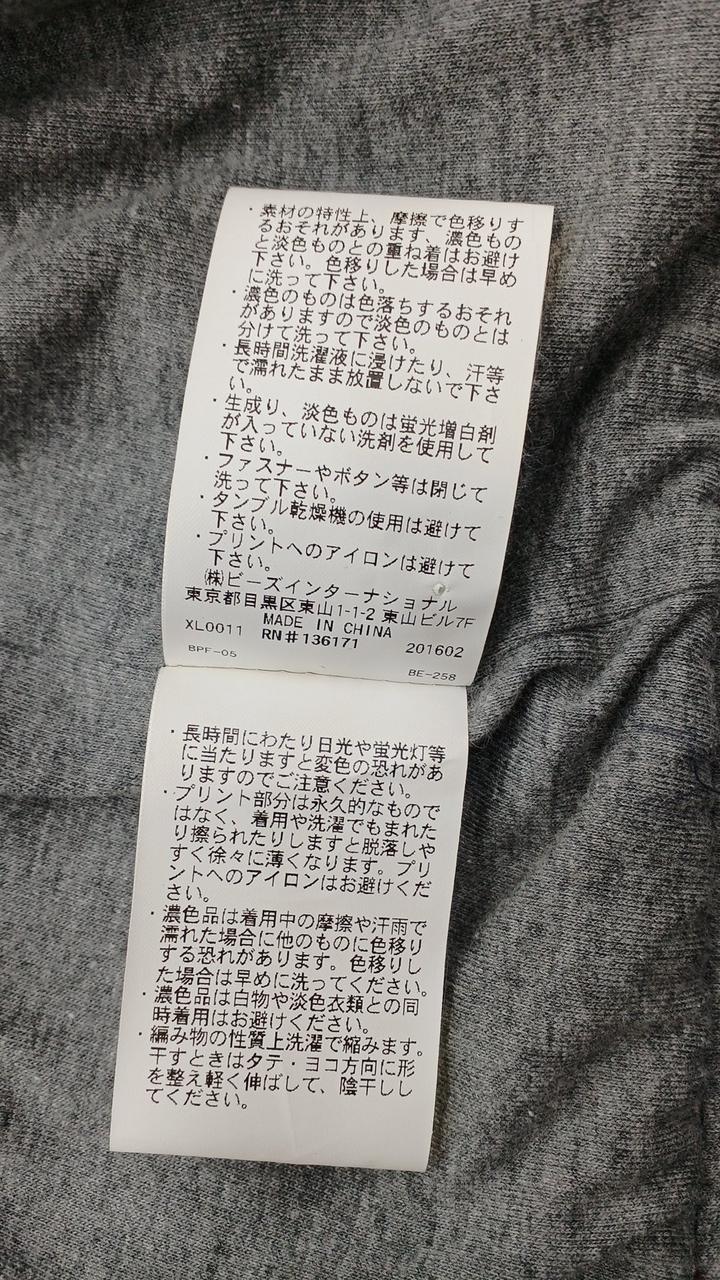 ・素材の特性上、摩擦で色移りす
るおそれがあります、濃色もの
と淡色ものとの重ね着はお避け
下さい。色移りした場合は早め
に洗って下さい。
・濃色のものは色落ちするおそれ
がありますので淡色のものとは
分けて洗って下さい。
・長時間洗濯液に浸けたり、汗等
で濡れたまま放置しないで下さ
い。
・生成り、淡色ものは蛍光増白剤
が入っていない洗剤を使用して
下さい。
・ファスナーやボタン等は閉じて
洗って下さい。
・タンブル乾燥機の使用は避けて
下さい。
・プリントへのアイロンは避けて
下さい。
㈱ビーズインターナショナル
東京都目黒区東山1-1-2 東山ビル7F
MADE IN CHINA
XL0011 RN#136171 201602
BPF-05 BE-258
・長時間にわたり日光や蛍光灯等
に当たりますと変色の恐れがあ
りますのでご注意ください。
・プリント部分は永久的なもので
はなく、着用や洗濯でもまれた
り擦られたりしますと脱落しや
すく徐々に薄くなります。プリ
ントへのアイロンはお避けくだ
さい。
・濃色品は着用中の摩擦や汗雨で
濡れた場合に他のものに色移り
する恐れがあります。色移りし
た場合は早めに洗ってください。
・濃色品は白物や淡色衣類との同
時着用はお避けください。
・編み物の性質上洗濯で縮みます。
干すときはタテ・ヨコ方向に形
を整え軽く伸ばして、陰干しし
てください。